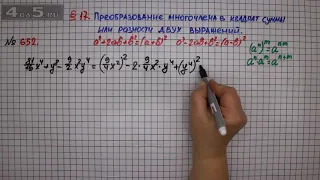 4 ДЗ 5.ru
§ 17. Преобразование многочлена в квадрат суммы
или разности двух выражений.
№ 652. a²+2ab+b²=(a+b)² a²-2ab+b²=(a-b)²
(aⁿ)ᵐ=aⁿᵐ
aⁿ·aᵐ=aⁿ⁺ᵐ
x⁴+y⁸-9/2x²y⁴=(9/4x²)²-2·9/4x²·y⁴+(y⁴)²